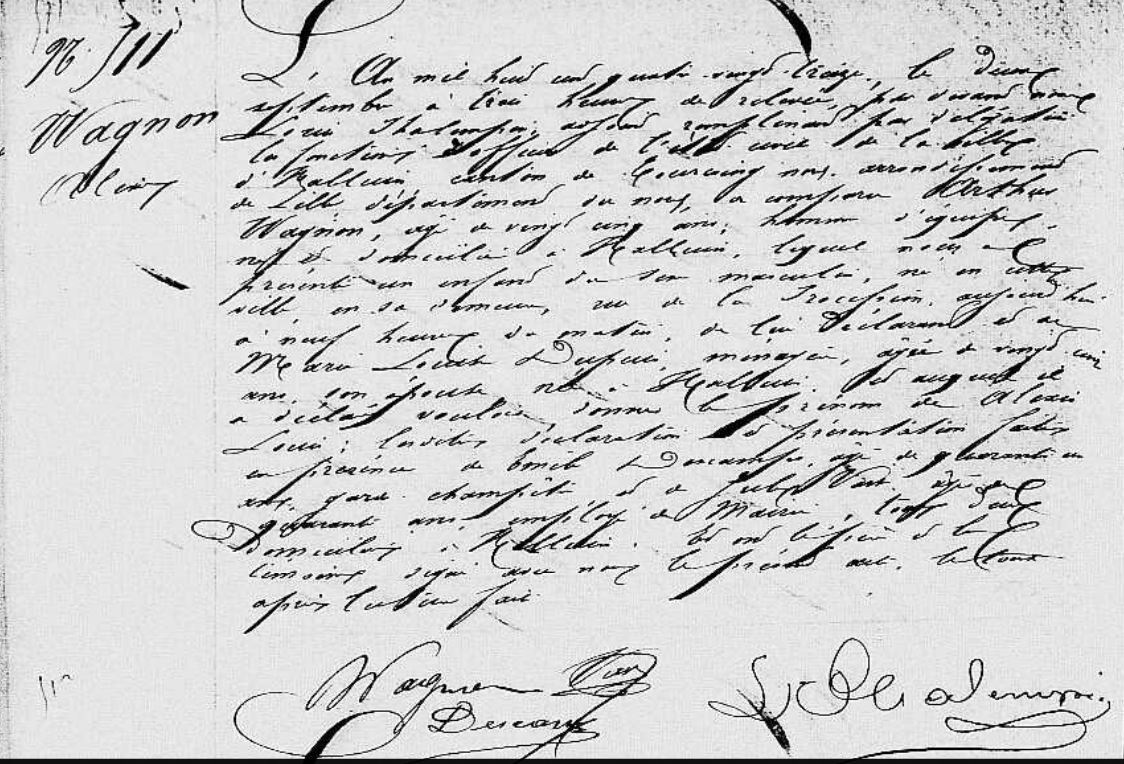 Wagnon
Alexis
L'An mil huit cent quatre-vingt-treize, le deux
septembre à trois heures de relevée, par devant nous
Louis adjoint remplissant par délégation
les fonctions d'officier de l'état civil de la ville
d'Halluin, canton de Tourcoing nord, arrondissement
de Lille, département du nord, a comparu Arthur
Wagnon, âgé de vingt cinq ans, homme d'équipe,
né & domicilié à Halluin, lequel nous a
présenté un enfant du sexe masculin, né en cette
ville, en sa demeure, rue de la Procession, aujourd'hui
à neuf heures du matin, de lui déclarant et de
Marie Louise Dupuis, ménagère, âgée de vingt cinq
ans, son épouse née à Halluin, et auquel il
a déclaré vouloir donner le prénom de Alexis
Louis; lesdites déclaration & présentation faites
en présence de Emile Descamps, âgé de quarante un
ans, garde champêtre, et de Jules âgé de
quarante ans employé de Mairie, tous deux
domiciliés à Halluin. Et ont le père & les
témoins signé avec nous le présent acte, le tout
après lecture faite
Wagnon
Descamps